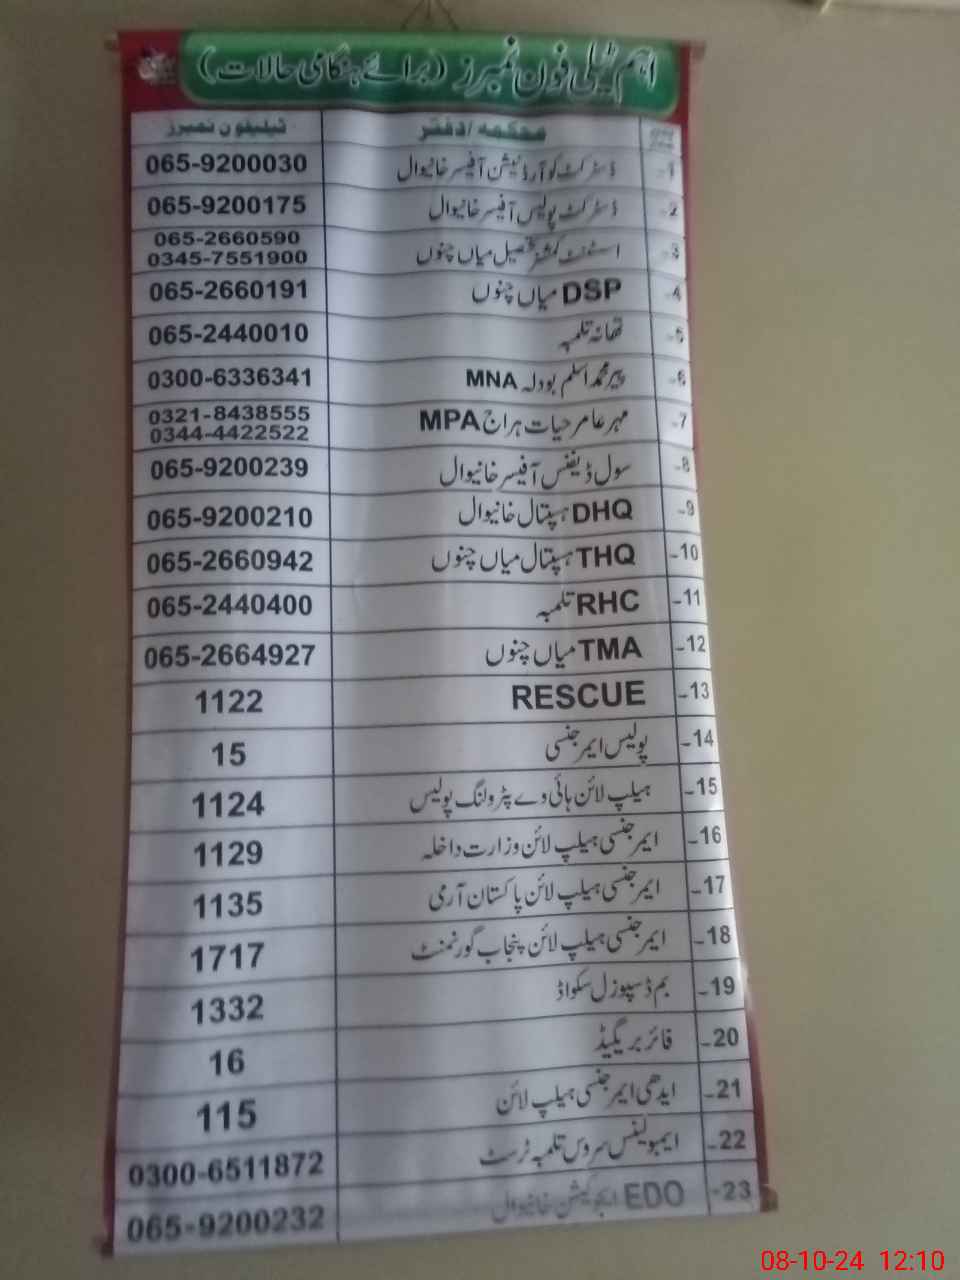 اہم ٹیلی فون نمبرز (برائے ہنگامی حالات)
محکمہ / دفتر ٹیلیفون نمبرز
1- ڈسٹرکٹ کوآرڈینیشن آفیسر خانیوال 065-9200030
2- ڈسٹرکٹ پولیس آفیسر خانیوال 065-9200175
3- اسسٹنٹ کمشنر تحصیل میاں چنوں 065-2660590
0345-7551900
4- DSP میاں چنوں 065-2660191
5- تھانہ تلمبہ 065-2440010
6- پیر محمد اسلم بودلہ MNA 0300-6336341
7- مہر عامر حیات ہراج MPA 0321-8438555
0344-4422522
8- سول ڈیفنس آفیسر خانیوال 065-9200239
9- DHQ ہسپتال خانیوال 065-9200210
10- THQ ہسپتال میاں چنوں 065-2660942
11- RHC تلمبہ 065-2440400
12- TMA میاں چنوں 065-2664927
13- RESCUE 1122
14- پولیس ایمرجنسی 15
15- ہیلپ لائن ہائی وے پٹرولنگ پولیس 1124
16- ایمرجنسی ہیلپ لائن وزارت داخلہ 1129
17- ایمرجنسی ہیلپ لائن پاکستان آرمی 1135
18- ایمرجنسی ہیلپ لائن پنجاب گورنمنٹ 1717
19- بم ڈسپوزل سکواڈ 1332
20- فائر بریگیڈ 16
21- ایدھی ایمرجنسی ہیلپ لائن 115
22- ایمبولینس سروس تلمبہ ٹرسٹ 0300-6511872
23- EDO ایجوکیشن خانیوال 065-9200232
08-10-24 12:10